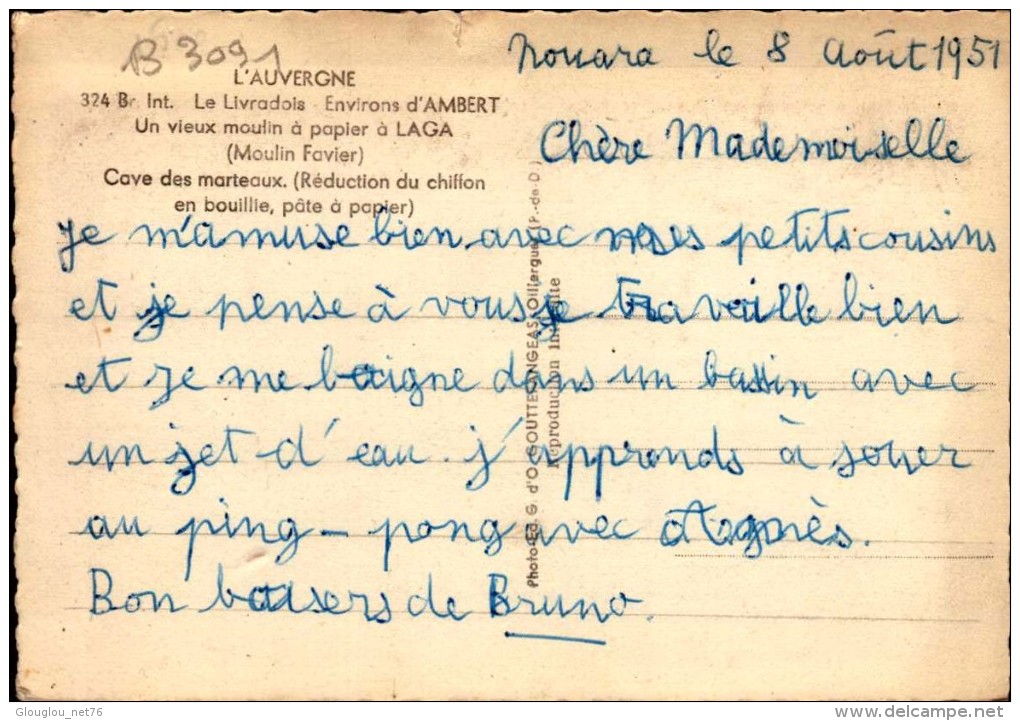 B 3091
L'AUVERGNE
324 Br. Int. Le Livradois - Environs d'AMBERT
Un vieux moulin à papier à LAGA
(Moulin Favier)
Cave des marteaux. (Réduction du chiffon
en bouillie, pâte à papier)
Nouara le 8 Août 1951
Chère Mademoiselle
Je m'amuse bien avec mes petits cousins
et je pense à vous je travaille bien
et je me baigne dans un bassin avec
un jet d'eau. j'apprends à jouer
au ping-pong avec Agnès.
Bon baisers de Bruno.
Photo-Ed. G. d'O. GOUTTEFANGEAS, Olliergues (P.-de-D.)
Reproduction interdite
Glouglou_net76
delcampe.net